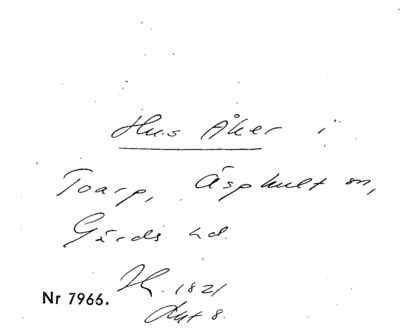 Hus Åker i
Toarp, Äsphult sn,
Gärds hd.
1821
Nr 7966.
8.